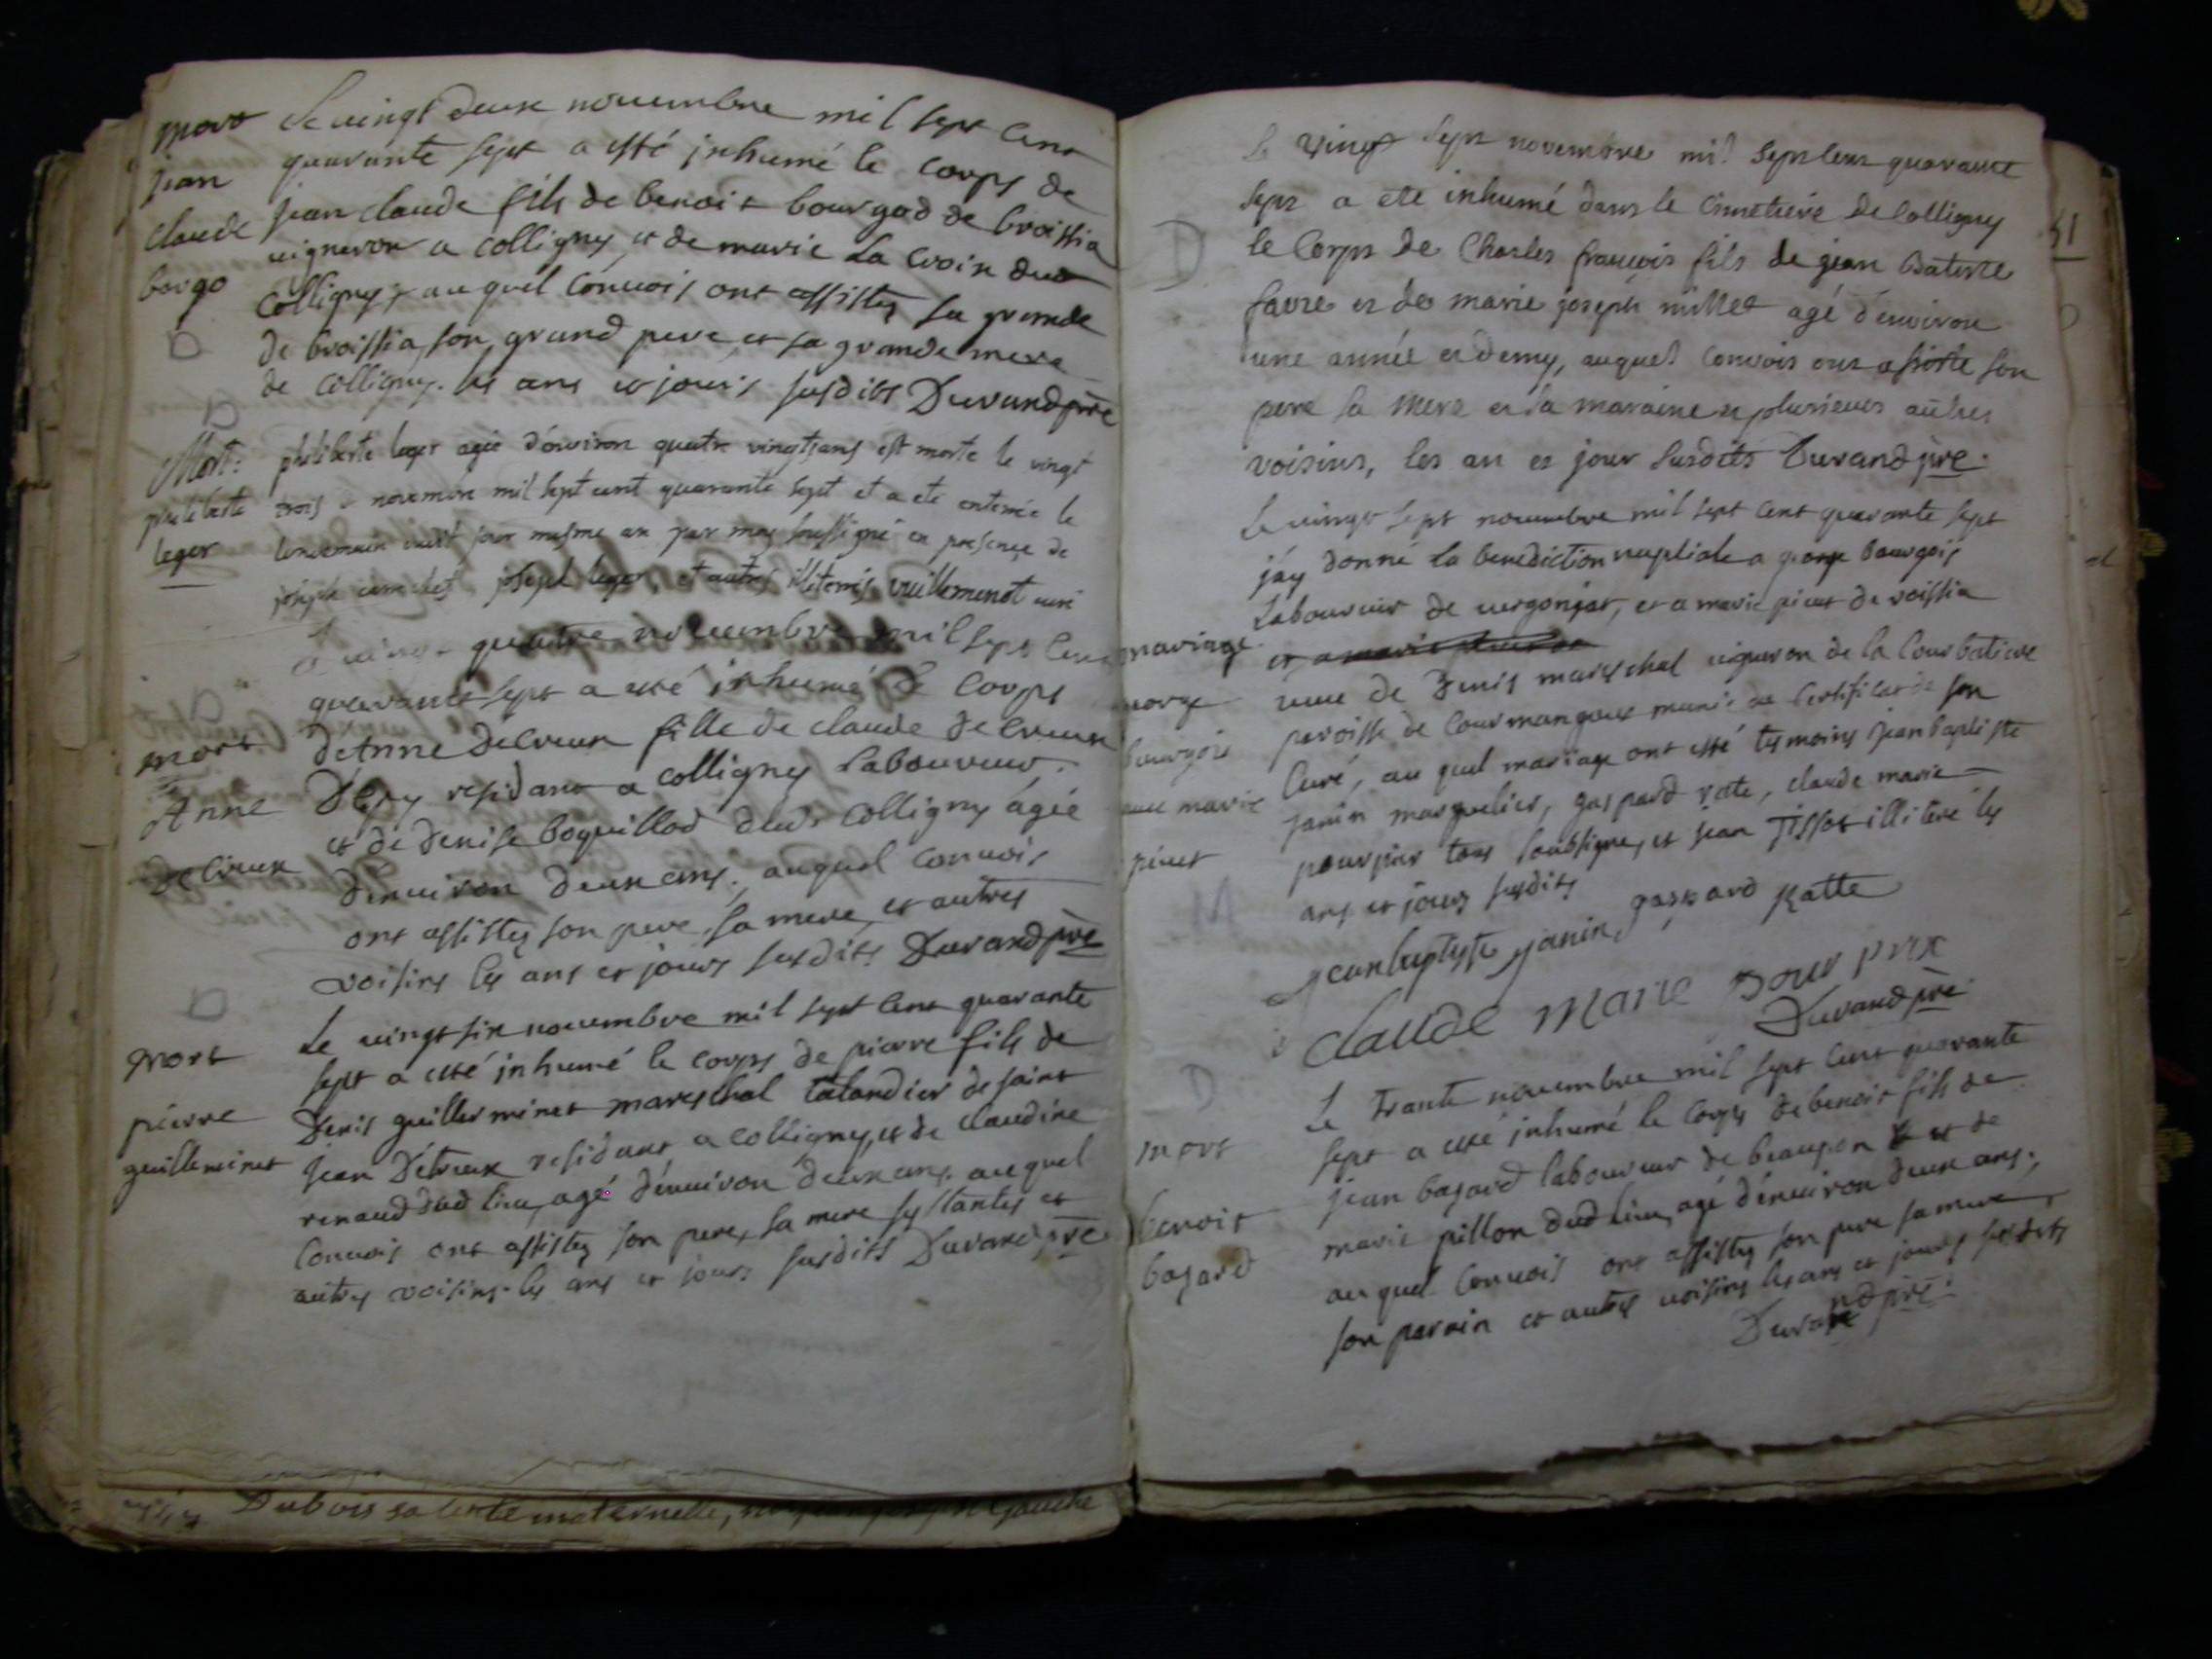 mort
jean
claude
borgo
D
Le vingt deux novembre mil sept cent
quarante sept a esté inhumé le corps de
jean claude fils de benoit bourgod de broissia
vigneron a colligny et de marie La Croix dud
Colligny, au quel Convois ont assistez sa grande
de broissia, son grand pere, et sa grande mere
de Colligny. les ans et jours susdits Durand pre
Mort:
philiberte
leger
philiberte leger agée d'environ quatre vingts ans est morte le vingt
trois novembre mil sept cent quarante sept et a eté enterrée le
lendemain jour mesme an par moy soussigné en presence de
joseph joseph leger, et autres illiterés vuillemenot curé
quatre novembre mil sept cent
quarante sept a esté inhumé le Corps
mort
Anne
deCreux
D
d'Anne deCreux fille de claude deCreux
residant a colligny Laboureur,
et de denise boquillod dud. Colligny âgée
d'environ deux ans, auquel Convois
ont assistez son pere, sa mere, et autres
voisins les ans et jours susdits Durand pre
mort
pierre
guilleminet
Le vingt six novembre mil sept cent quarante
sept a esté inhumé le corps de pierre fils de
Denis guillerminet mareschal talandier de saint
jean D'etreux residant a Colligny, et de claudine
renaud dud lieu, agé d'environ deux ans. auquel
Convois ont assistez son pere, sa mere ses tantes et
autres voisins. les ans et jours susdits Durand pre
Dubois sa tente maternelle,
D
Le vingt sept novembre mil sept cent quarante
sept a eté inhumé dans le Cimetiere de Colligny
le Corps de Charles françois fils de jean Batiste
favre et de marie joseph millet agé d'environ
une année et demy, auquel Convois ont assisté son
pere sa mere et sa maraine et plusieurs autres
voisins, les an et jour susdits Durand pre.
51
mariage
george
bourgois
avec marie
pivet
M
Le vingt sept novembre mil sept cent quarante sept
j'ay donné la benediction nuptiale a george bourgois
Laboureur de vergongeat, et a marie pivet de roissia
veuve de Denis mareschal vigneron de la Courbatiere
paroisse de Courmangoux munie du Certificat de son
Curé, au quel mariage ont esté tesmoins jean baptiste
janin masquelier, gaspard ratte, claude marie
pourprix tous soubsignes, et jean Tissot illitere les
ans et jours susdits
jeanbaptyste janin, gaspard Ratte
Claude Marie pour prix
Durand pre
D
mort
benoit
bagard
Le trante novembre mil sept cent quarante
sept a esté inhumé le Corps de benoit fils de
jean bagard laboureur de beaupon et de
marie pillon dud lieu, agé d'environ deux ans,
au quel Convois ont assistez son pere sa mere,
son parain et autres voisins les ans et jours susdits
Durand pre.